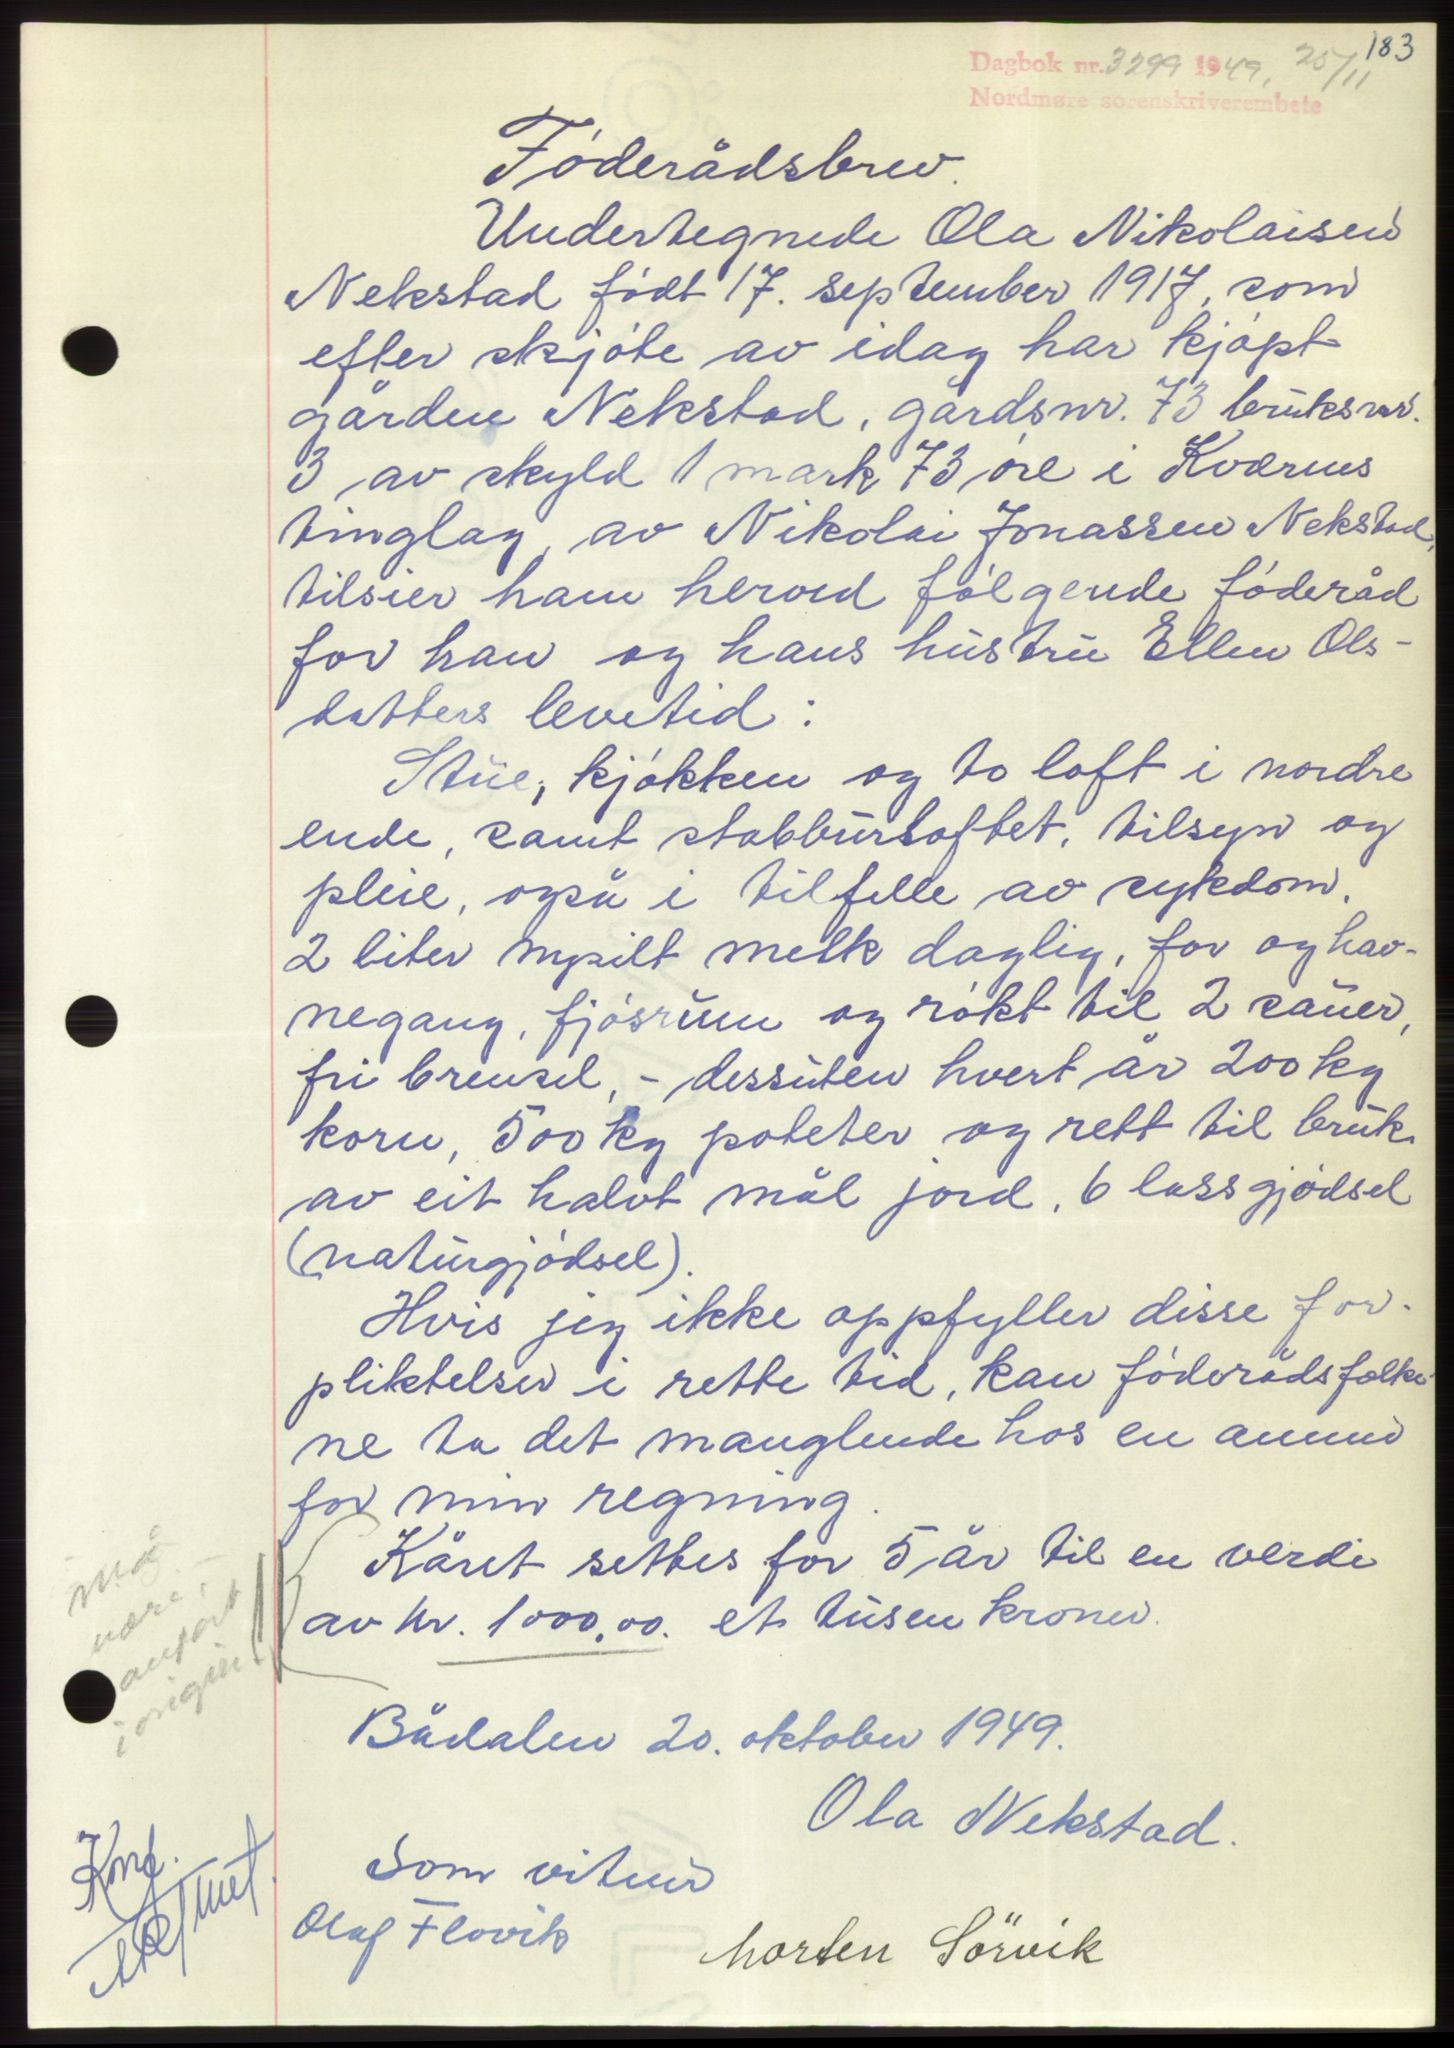 183
Dagbok nr. 3299 1949, 25/11
Nordmøre sorenskriverembete
Föderådsbrev.
Undertegnede Ola Nikolaisen
Nekstad födt 17. september 1917, som
efter skjöte av idag har kjöpt
gården Nekstad, gårdsnr. 73 bruksnr.
3 av skyld 1 mark 73 öre i Kværnes
tinglag, av Nikolai Jonassen Nekstad,
tilsier ham herved fölgende föderåd
for han og hans hustru Ellen Ols-
datters levetid:
Stue, kjökken og to loft i nordre
ende, samt stabbursloftet, tilsyn og
pleie, også i tilfelle av sykdom.
2 liter nysilt melk daglig, for og hav-
negang, fjösrum og rökt til 2 sauer,
fri brensel, - dessuten hvert år 200 kg
korn, 500 kg poteter og rett til bruk
av eit halvt mål jord, 6 lass gjödsel
(naturgjödsel).
Hvis jeg ikke oppfyller disse for-
pliktelser i rette tid, kan föderådsfolke-
ne ta det manglende hos en annen
for min regning.
Kåret settes for 5 år til en verdi
av kr. 1000,00. et tusen kroner.
Må
være
anfört
i origin.
Bådalen 20. oktober 1949.
Ola Nekstad.
Som vitner
Olaf Flovik
Morten Sörvik
Konf.